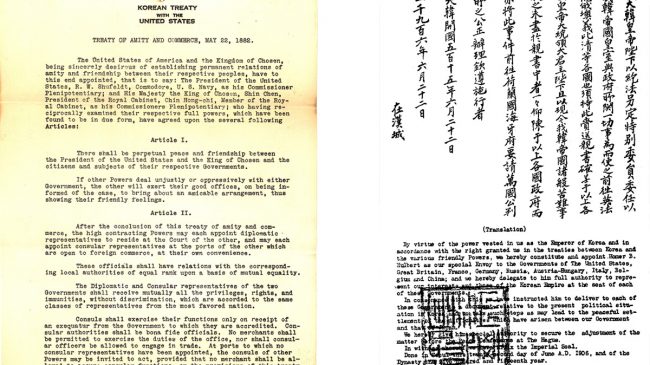 KOREAN TREATY
WITH THE
UNITED STATES
TREATY OF AMITY AND COMMERCE, MAY 22, 1882.
The United States of America and the Kingdom of Chosen,
being sincerely desirous of establishing permanent relations of
amity and friendship between their respective peoples, have to
this end appointed, that is to say: The President of the United
States, R. W. Shufeldt, Commodore, U. S. Navy, as his Commissioner
Plenipotentiary; and His Majesty the King of Chosen, Shin Chen,
President of the Royal Cabinet, Chin Hong-chi, Member of the Roy-
al Cabinet, as his Commissioners Plenipotentiary; who having re-
ciprocally examined their respective full powers, which have been
found to be in due form, have agreed upon the several following
Articles:
Article I.
There shall be perpetual peace and friendship between
the President of the United States and the King of Chosen and the
citizens and subjects of their respective Governments.
If other Powers deal unjustly or oppressively with either
Government, the other will exert their good offices, on being in-
formed of the case, to bring about an amicable arrangement, thus
showing their friendly feelings.
Article II.
After the conclusion of this treaty of amity and com-
merce, the high contracting Powers may each appoint diplomatic
representatives to reside at the Court of the other, and may each
appoint consular representatives at the ports of the other which
are open to foreign commerce, at their own convenience.
These officials shall have relations with the correspond-
ing local authorities of equal rank upon a basis of mutual equality.
The Diplomatic and Consular representatives of the two
Governments shall receive mutually all the privileges, rights, and
immunities, without discrimination, which are accorded to the same
classes of representatives from the most favored nation.
Consuls shall exercise their functions only on receipt of
an exequatur from the Government to which they are accredited. Con-
sular authorities shall be bona fide officials. No merchants shall
be permitted to exercise the duties of the office, nor shall consu-
lar officers be allowed to engage in trade. At ports to which no
consular representatives have been appointed, the consuls of other
Powers may be invited to act, provided that no merchant shall be al-
大韓帝國皇帝陛下以 法另定特別委員委任以
韓帝國皇室與政府所關一切事為而使之前往英法
清等各國也 特此 送親書確呈于以上各
皇帝大統領大君主陛下且以現今我韓帝國諸般苦難事
之未盡於親書中者々仰陳于以上各國政府而
亦將此事件前往荷蘭國海牙府要請萬國公判
所之公正辦理欽遵施行者
大韓開國五百十五年六月二十二日
千九百六年六月二十二日
在漢城
(Translation)
By virtue of the power vested in us as the Emperor of Korea and in
accordance with the right granted us in the treaties between Korea and
the various friendly Powers, we hereby constitute and appoint Homer B.
Hulbert as our special Envoy to the Governments of The United States,
Great Britain, France, Germany, Russia, Austria-Hungary, Italy, Bel-
gium and China; and we hereby delegate to him full authority to repre-
sent our Korean Empire at the seat of each
of these
In co instructed him to deliver to each of
these relative to the present political situ-
ation such steps as may lead to the peaceful set-
tlement which have arisen between our Government
and
We hereby authority to secure the adjustment of the
matter before the at The Hague.
In wit the Imperial Seal.
Done in day of June A.D. 1906, and of the
Dynasty and fifteenth year.